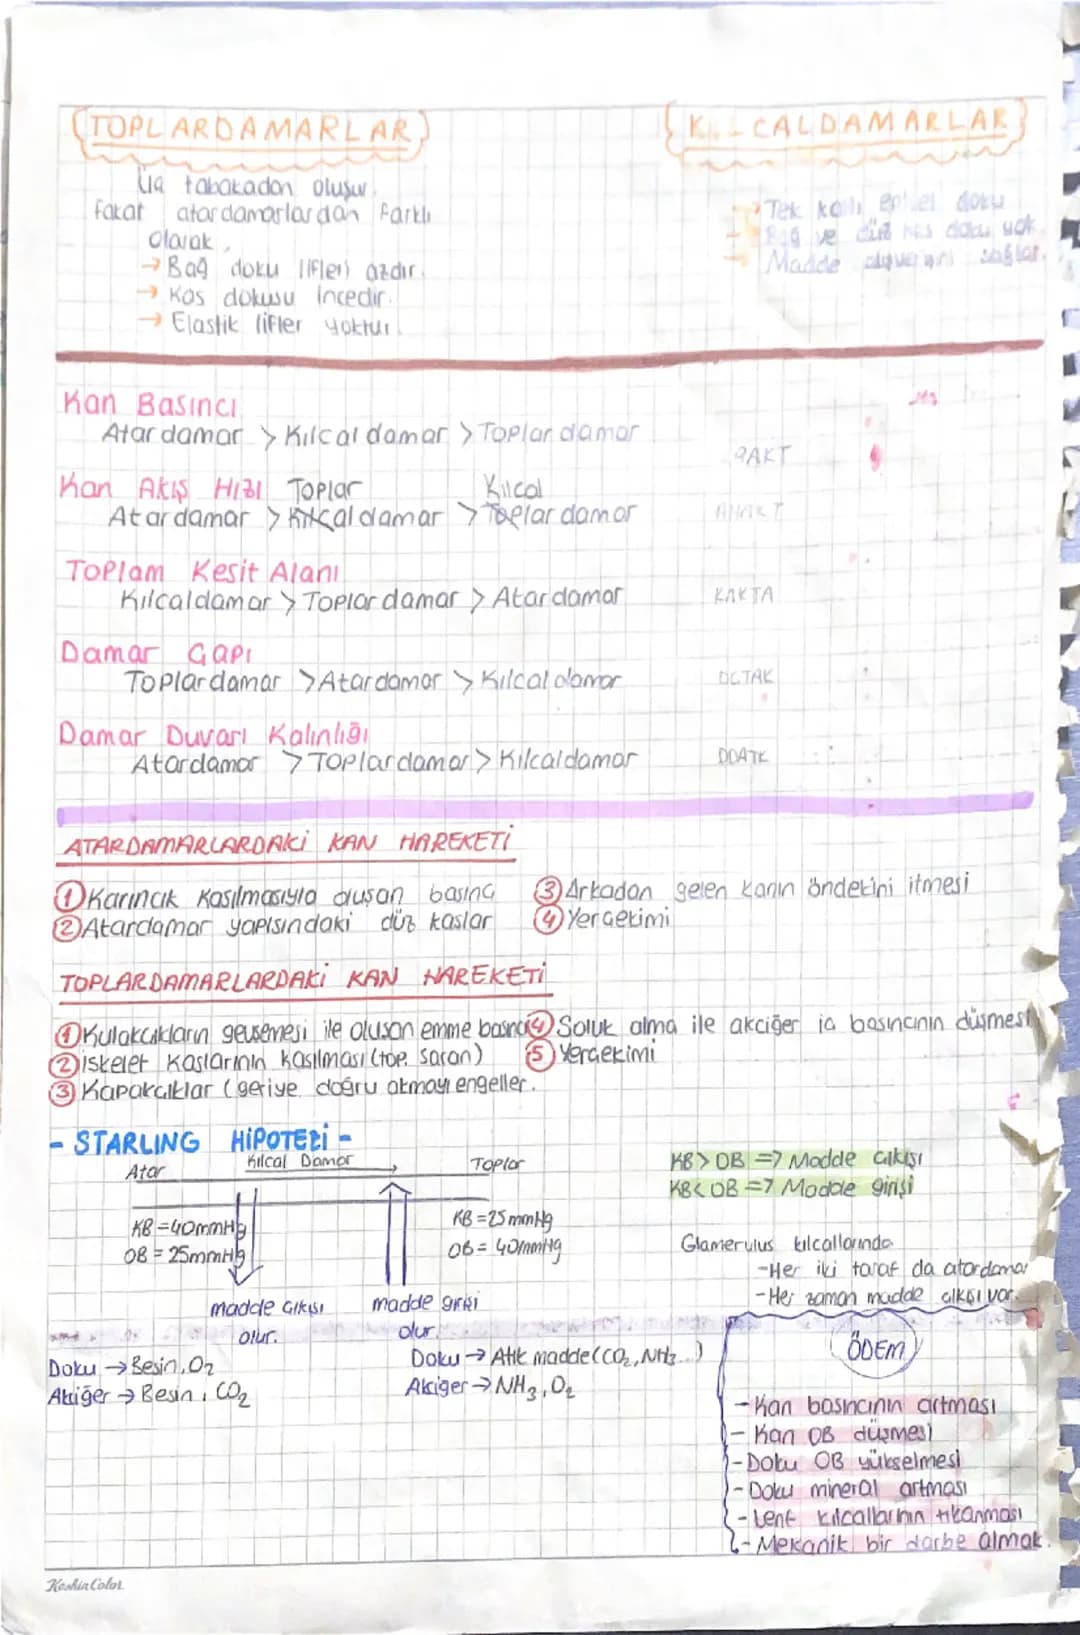 TOPLARDAMARLAR
Üç tabakadan oluşur.
fakat atardamarlardan farklı
olarak,
→ Bağ doku lifleri azdır.
→ Kas dokusu incedir.
→ Elastik lifler yoktur.
KILCALDAMARLAR
→ Tek katlı epitel doku
Bağ ve düz kas doku yok.
Madde alışverişini sağlar.
Kan Basıncı
Atardamar > Kılcaldamar > Toplardamar
PAKT
Kan Akış Hızı Toplar Kılcal
Atardamar > Kılcaldamar > Toplardamar
AHAKT
Toplam Kesit Alanı
Kılcaldamar > Toplardamar > Atardamar
KAKTA
Damar Çapı
Toplardamar > Atardamar > Kılcaldamar
DÇTAK
Damar Duvarı Kalınlığı
Atardamar > Toplardamar > Kılcaldamar
DDATK
ATARDAMARLARDAKİ KAN HAREKETİ
① Karıncık Kasılmasıyla oluşan basınç
② Atardamar yapısındaki düz kaslar
③ Arkadan gelen kanın öndekini itmesi
④ Yerçekimi
TOPLARDAMARLARDAKİ KAN HAREKETİ
① Kulakçıkların gevşemesi ile oluşan emme basıncı
② İskelet Kaslarının kasılması (top. saran)
③ Kapakçıklar (geriye doğru akmayı engeller.
④ Soluk alma ile akciğer iç basıncının düşmesi
⑤ Yerçekimi
- STARLING HİPOTEZİ -
Atar Kılcal Damar Toplar
KB = 40mmHg
OB = 25mmHg
KB = 25mmHg
OB = 40mmHg
madde çıkışı
olur.
madde girişi
olur.
Doku → Besin, O₂
Akciğer → Besin, CO₂
Doku → Atık madde (CO₂, NH₃...)
Akciğer → NH₃, O₂
KB > OB => Madde çıkışı
KB < OB => Madde girişi
Glamerulus kılcallarında
- Her iki taraf da atardamar
- Her zaman madde çıkışı var.
ÖDEM
- Kan basıncının artması
- Kan OB düşmesi
- Doku OB yükselmesi
- Doku mineral artması
- Lenf kılcallarının tıkanması
- Mekanik bir darbe almak.
Keskin Color